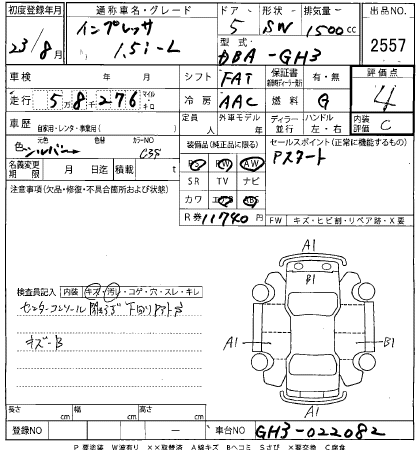 初度登録年月 通称車名・グレード ドア 形状 排気量 出品NO.
23/8月 インプレッサ 1.5i-L 5 SW 1500cc 2557
型式 DBA-GH3
車検 年 月 シフト FAT 保証書 有・無 評価点
走行 58276 マイル キロ 冷房 AAC 燃料 G 4
車歴 自家用・レンタ・事業用( ) 定員 人 外車モデル 年 ディーラー 並行 ハンドル 左・右 内装評価 C
色 元色 シルバー 色替 カラーNO
装備品(純正品に限る) セールスポイント(正常に機能するもの)
名義変更期限 月 日 積載 t
PS PW AW Pスタート
SR TV ナビ
注意事項(欠品・修復・不具合箇所および状態)
カワ エアB ABS
R券 11740円 FW キズ・ヒビ割・リペア跡・X要
A1
B1
検査員記入 内装 キズ・汚れ・コゲ・穴・スレ・キレ
センターコンソール
キズ・B
A1 B1
A1
長さ cm 幅 cm 高さ cm
登録NO - 車台NO GH3-022082
P要塗装 W波有り ××取替済 A線キズ Bヘコミ Sさび ×要交換 C腐食